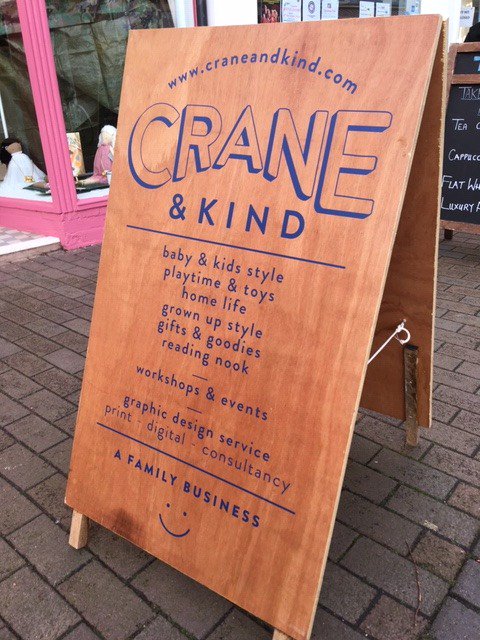 www.craneandkind.com
CRANE
& KIND
baby & kids style
playtime & toys
home life
grown up style
gifts & goodies
reading nook
workshops & events
graphic design service
print · digital · consultancy
A FAMILY BUSINESS
TEA
CAPPUCC
FLAT WH
LUXURY